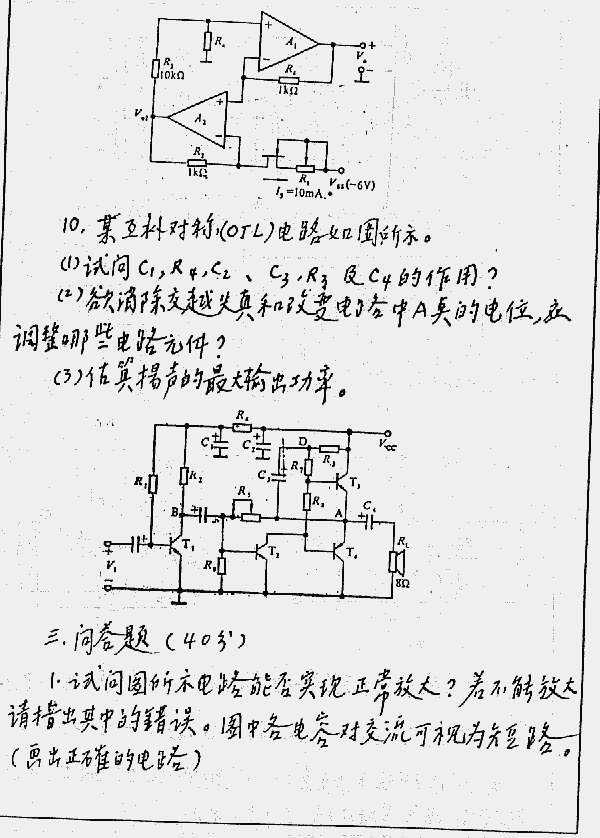 R₄
+
A₁
−
+
V₀
−
R₃
10kΩ
R₅
1kΩ
V₀₂
A₂
+
−
R₂
1kΩ
R₁
I₃=10mA.
Vss(−6V)
10. 某互补对称(OTL)电路如图所示。
(1)试问C₁,R₄,C₂、C₃,R₃及C₄的作用?
(2)欲消除交越失真和改变电路中A点的电位,应
调整哪些电路元件?
(3)估算扬声的最大输出功率。
R₄
C₁
C₂
D
R₃
Vcc
R₁
R₂
C₃
R₇
T₃
B
R₅
R₈
A
C₄
+
V₁
−
T₁
T₂
T₄
R_L
8Ω
三.问答题(40分)
1.试问图所示电路能否实现正常放大?若不能放大
请指出其中的错误。图中各电容对交流可视为短路。
(画出正确的电路)